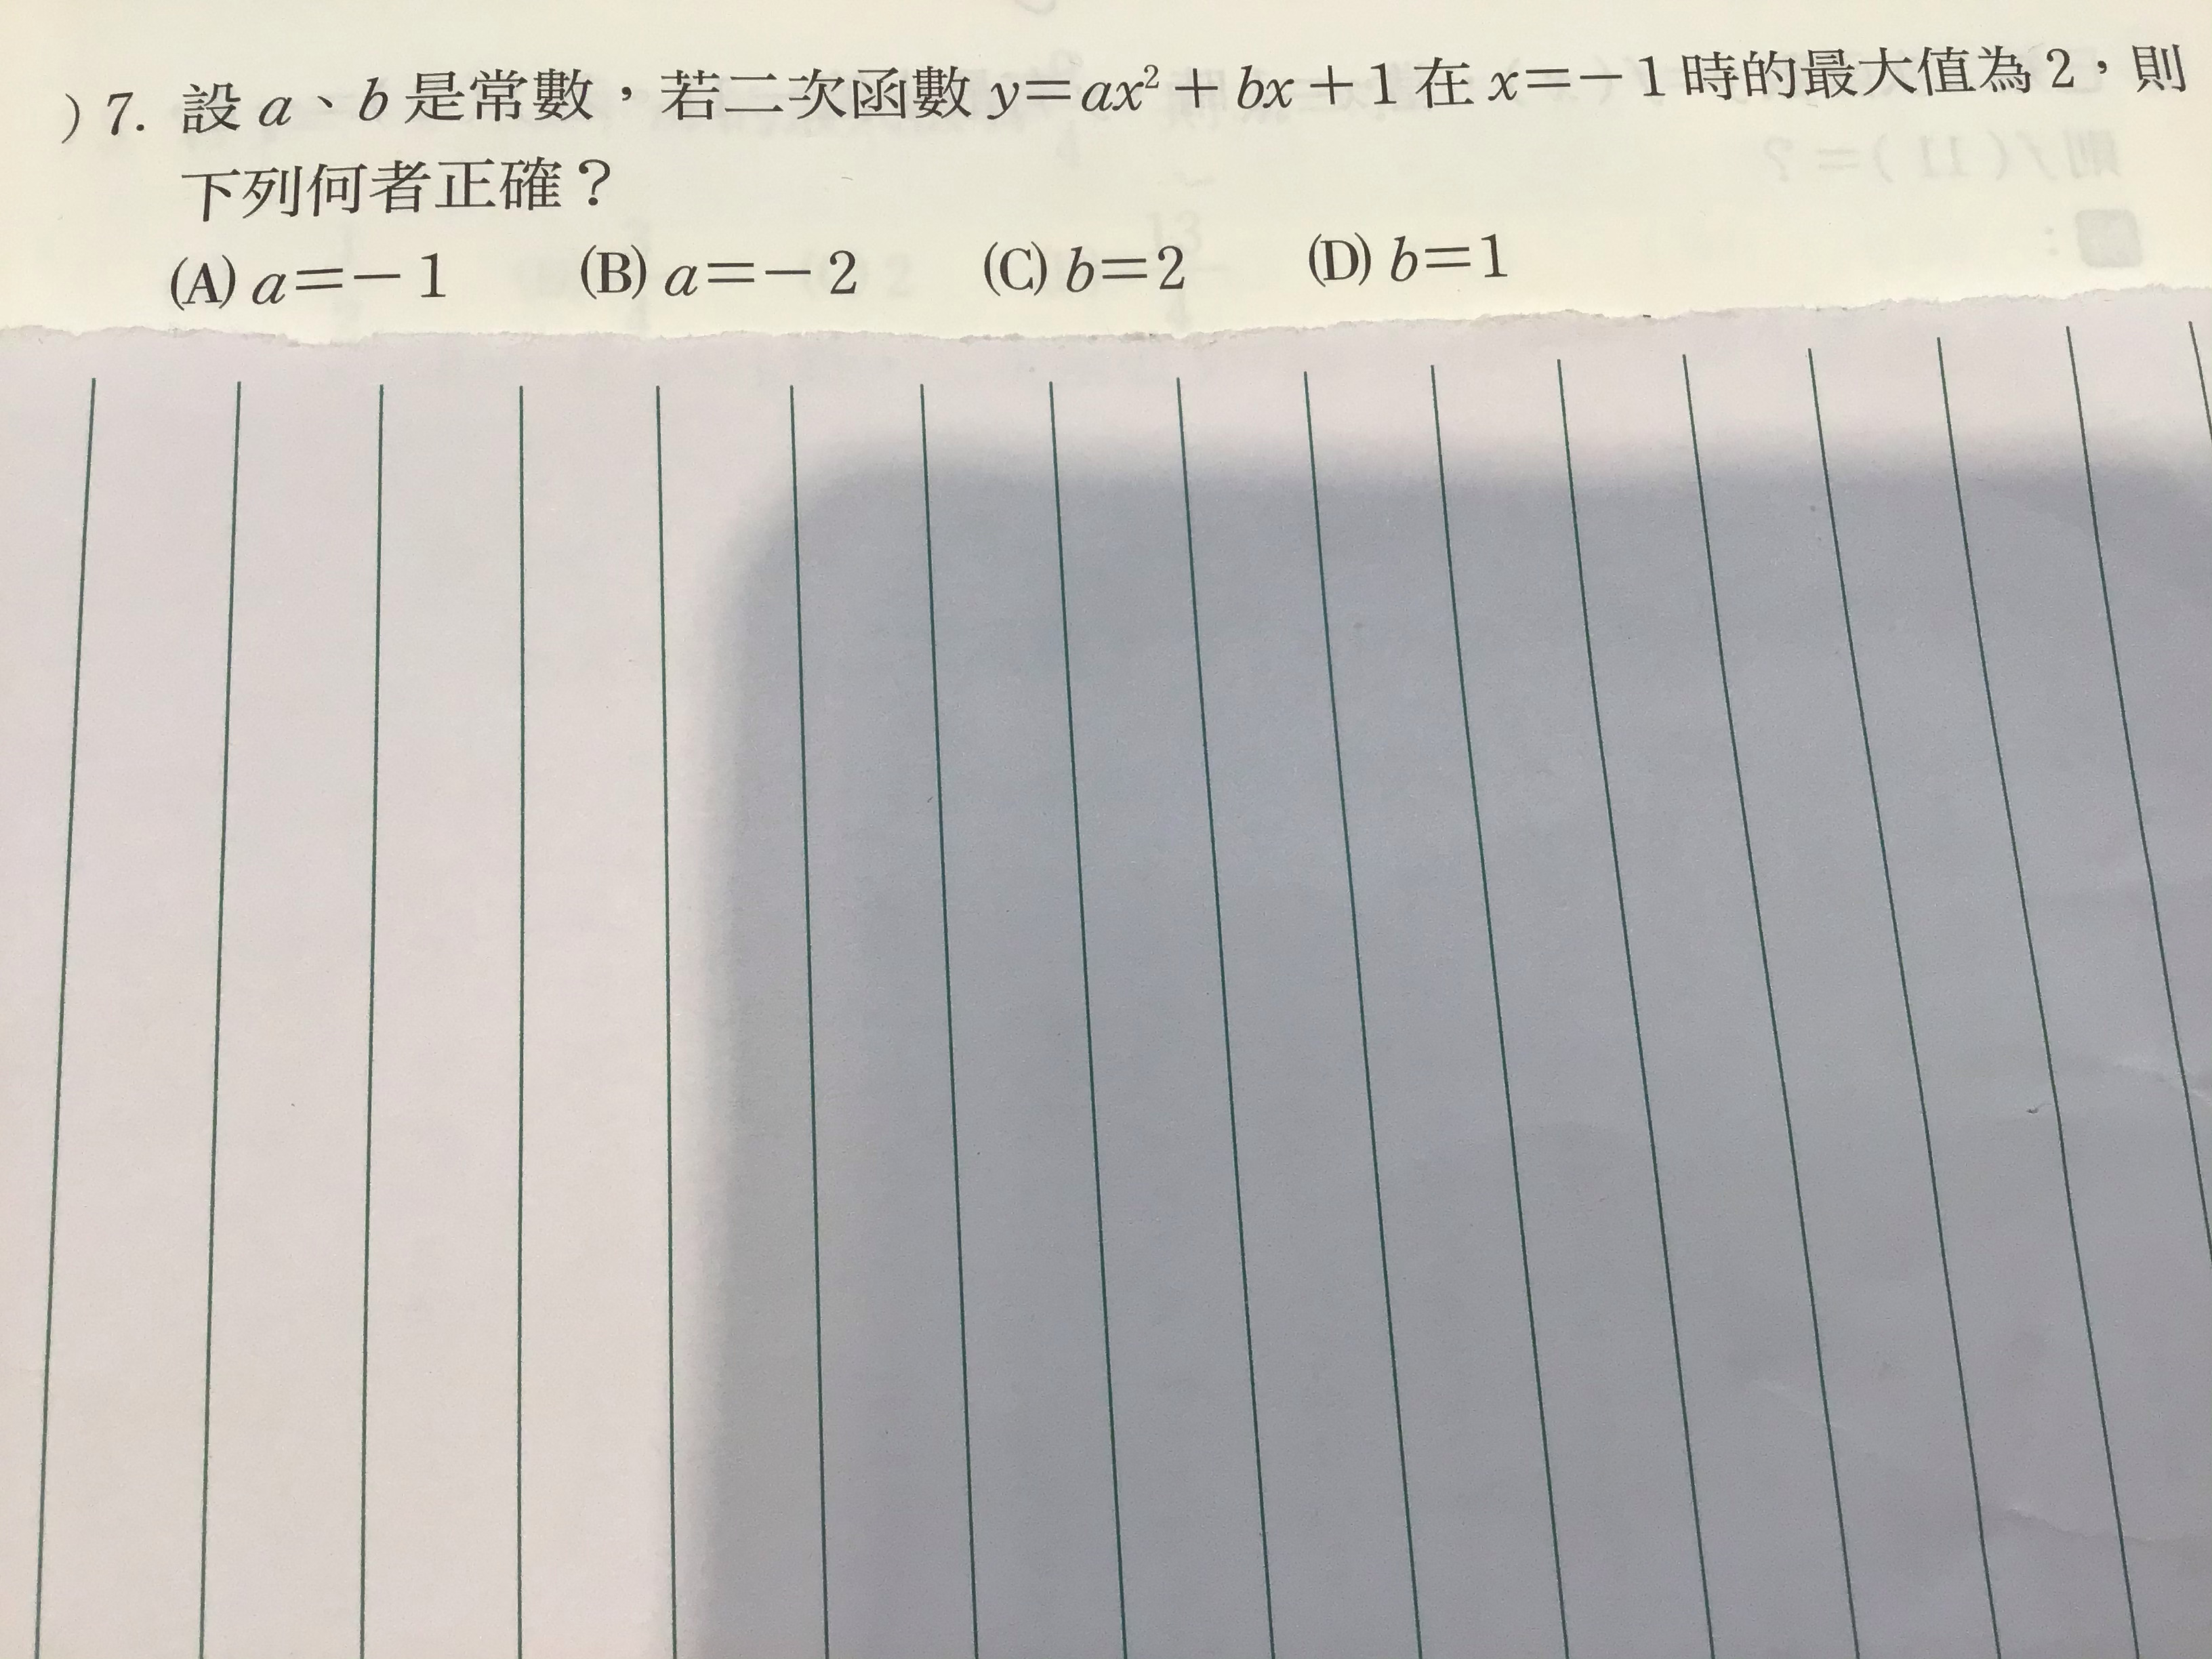 )7. 設 a、b 是常數，若二次函數 y＝ax²＋bx＋1 在 x＝－1 時的最大值為 2，則
下列何者正確？
(A) a＝－1 (B) a＝－2 (C) b＝2 (D) b＝1